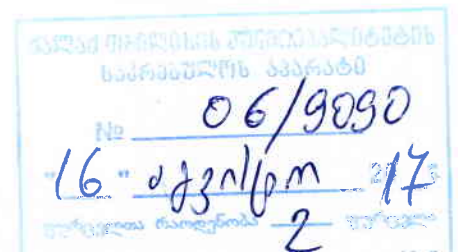 ქალაქ თბილისის მუნიციპალიტეტის
საკრებულოს აპარატი
№ 06/9090
"16" აგვისტო 2017
ფურცელთა რაოდენობა 2 ფურცელი